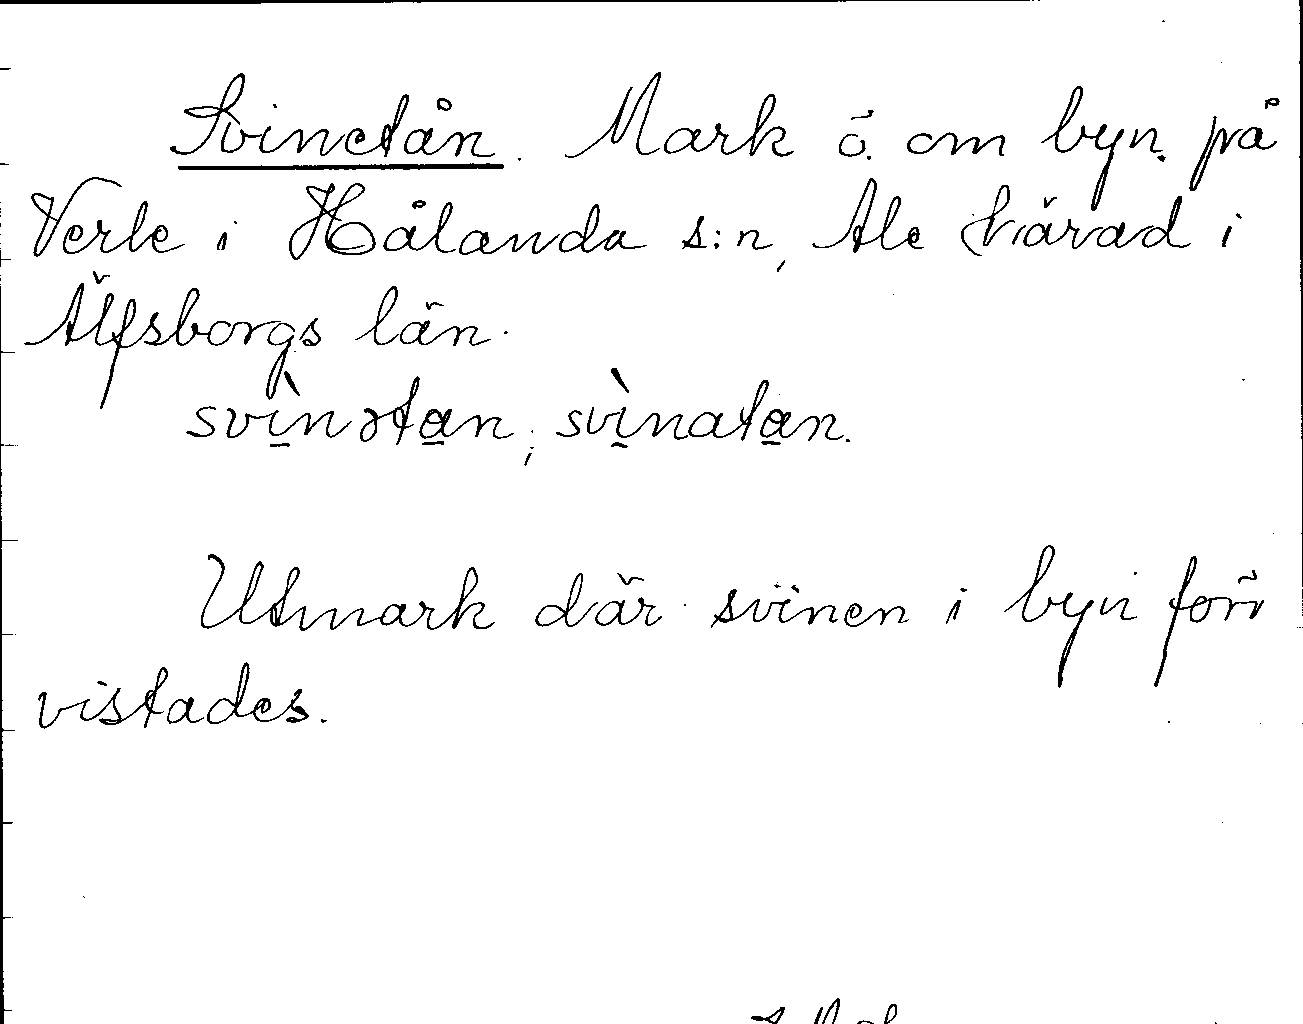 Svinetån. Mark ö. om byn. på
Verle i Hålanda s:n, Ale härad i
Älfsborgs län.
svìnətan; svìnatan.
Utmark där svinen i byn förr
vistades.